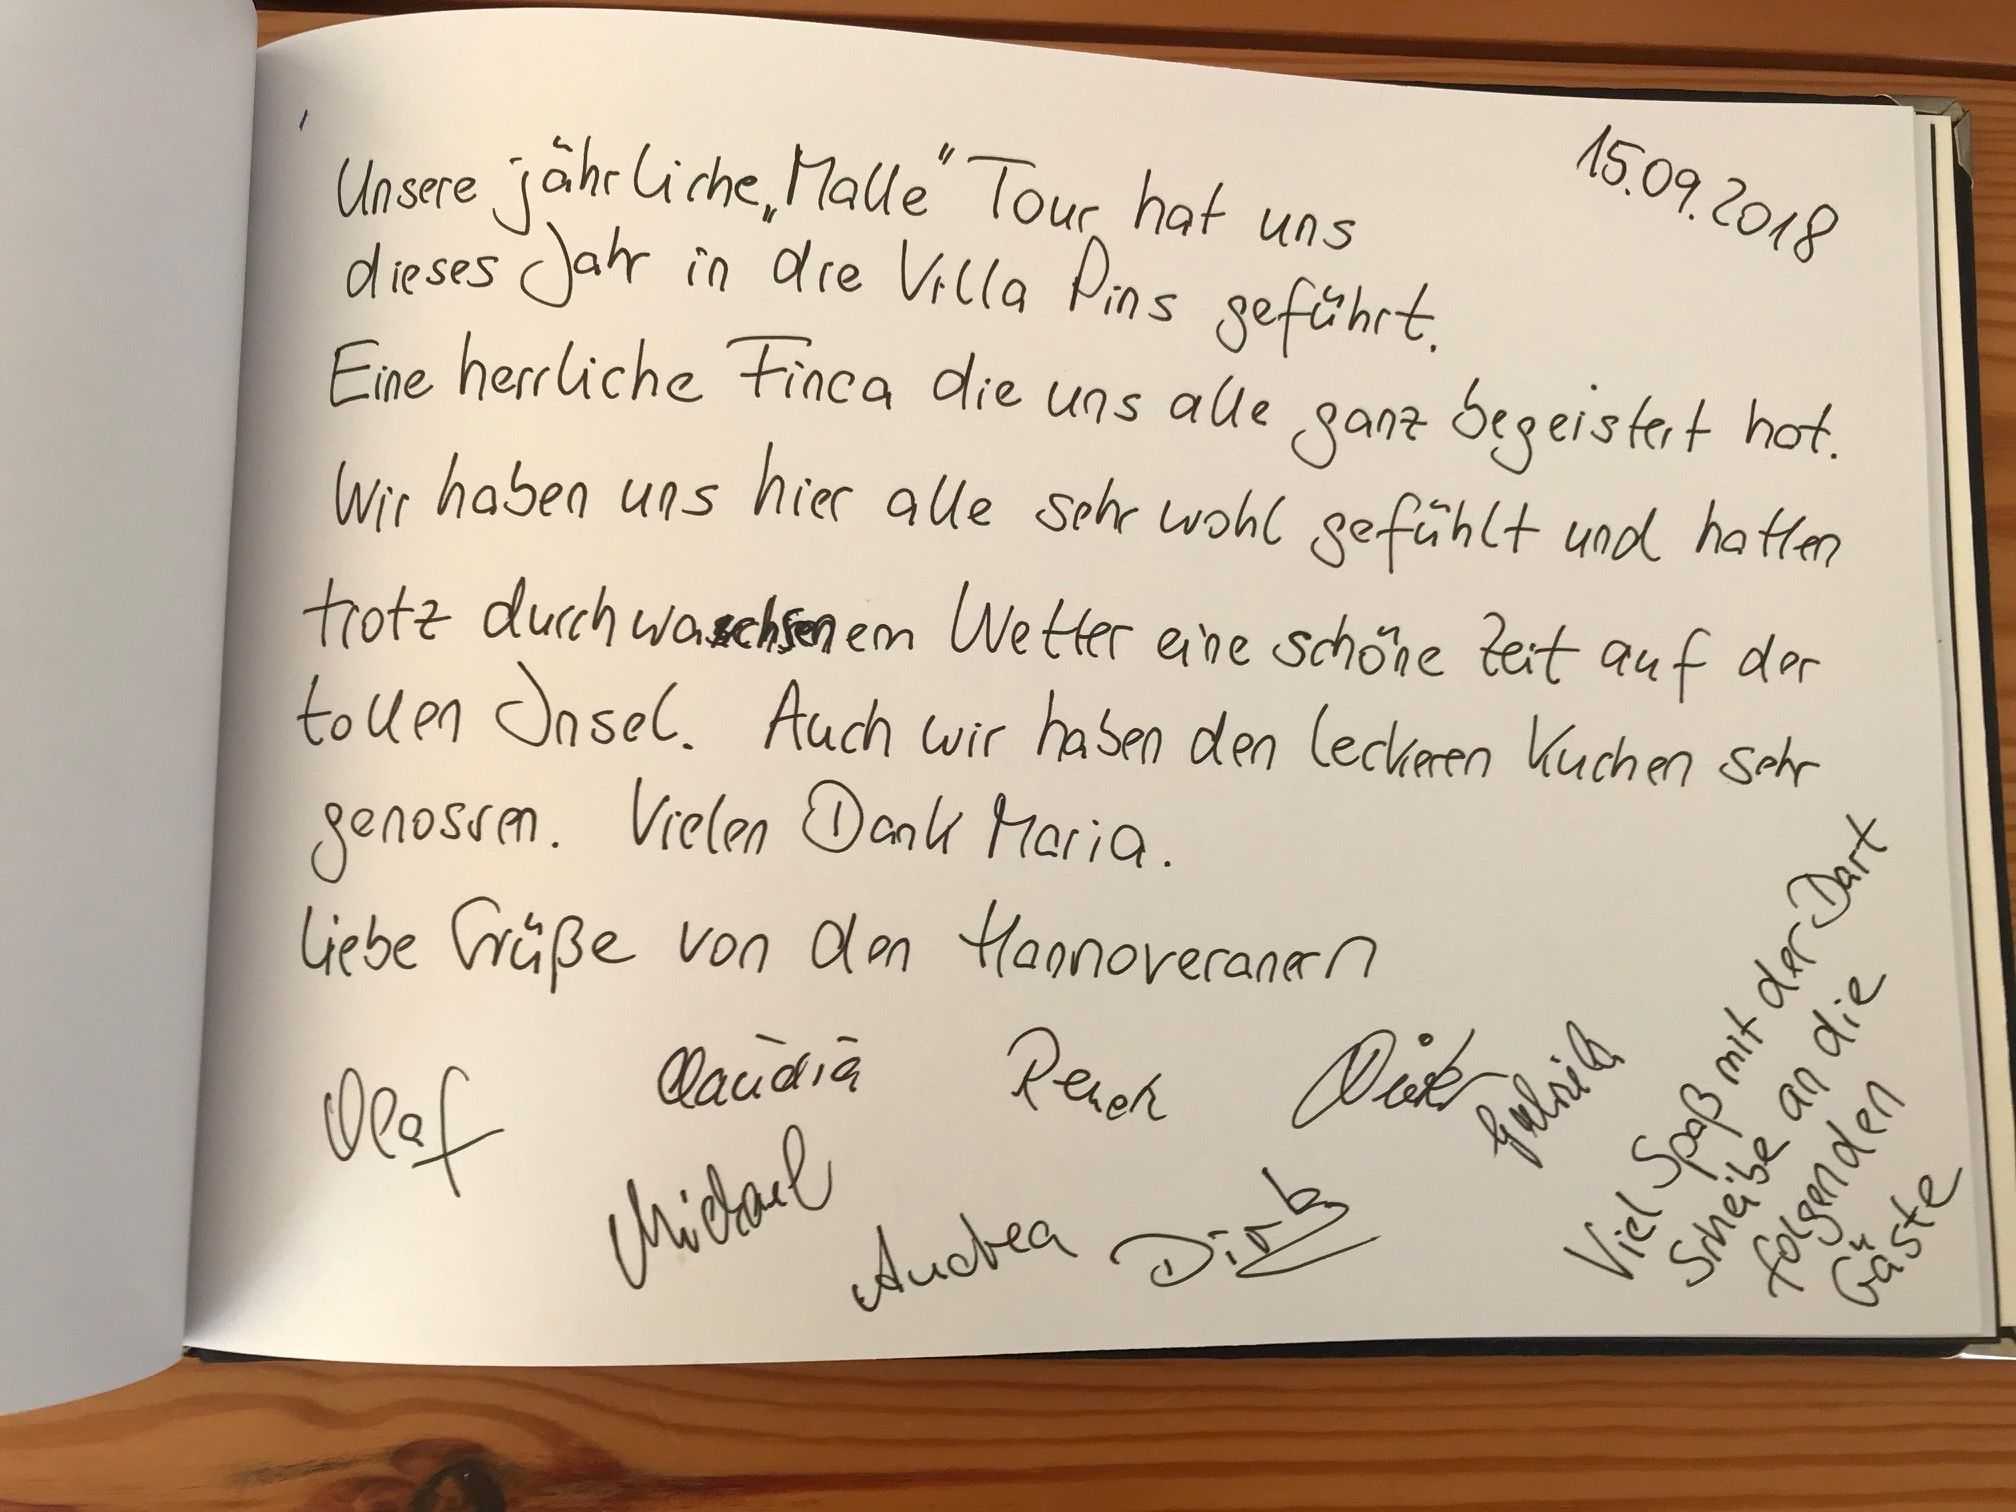 15.09.2018
Unsere jährliche „Malle“ Tour hat uns
dieses Jahr in die Villa Pins geführt.
Eine herrliche Finca die uns alle ganz begeistert hat.
Wir haben uns hier alle sehr wohl gefühlt und hatten
trotz durchwachsenem Wetter eine schöne Zeit auf der
tollen Insel. Auch wir haben den leckeren Kuchen sehr
genossen. Vielen Dank Maria.
Liebe Grüße von den Hannoveranern
Olaf Claudia Dieter Gabriela
Michael Andrea Dirk
Viel Spaß mit der Dart
Scheibe an die
folgenden
Gäste